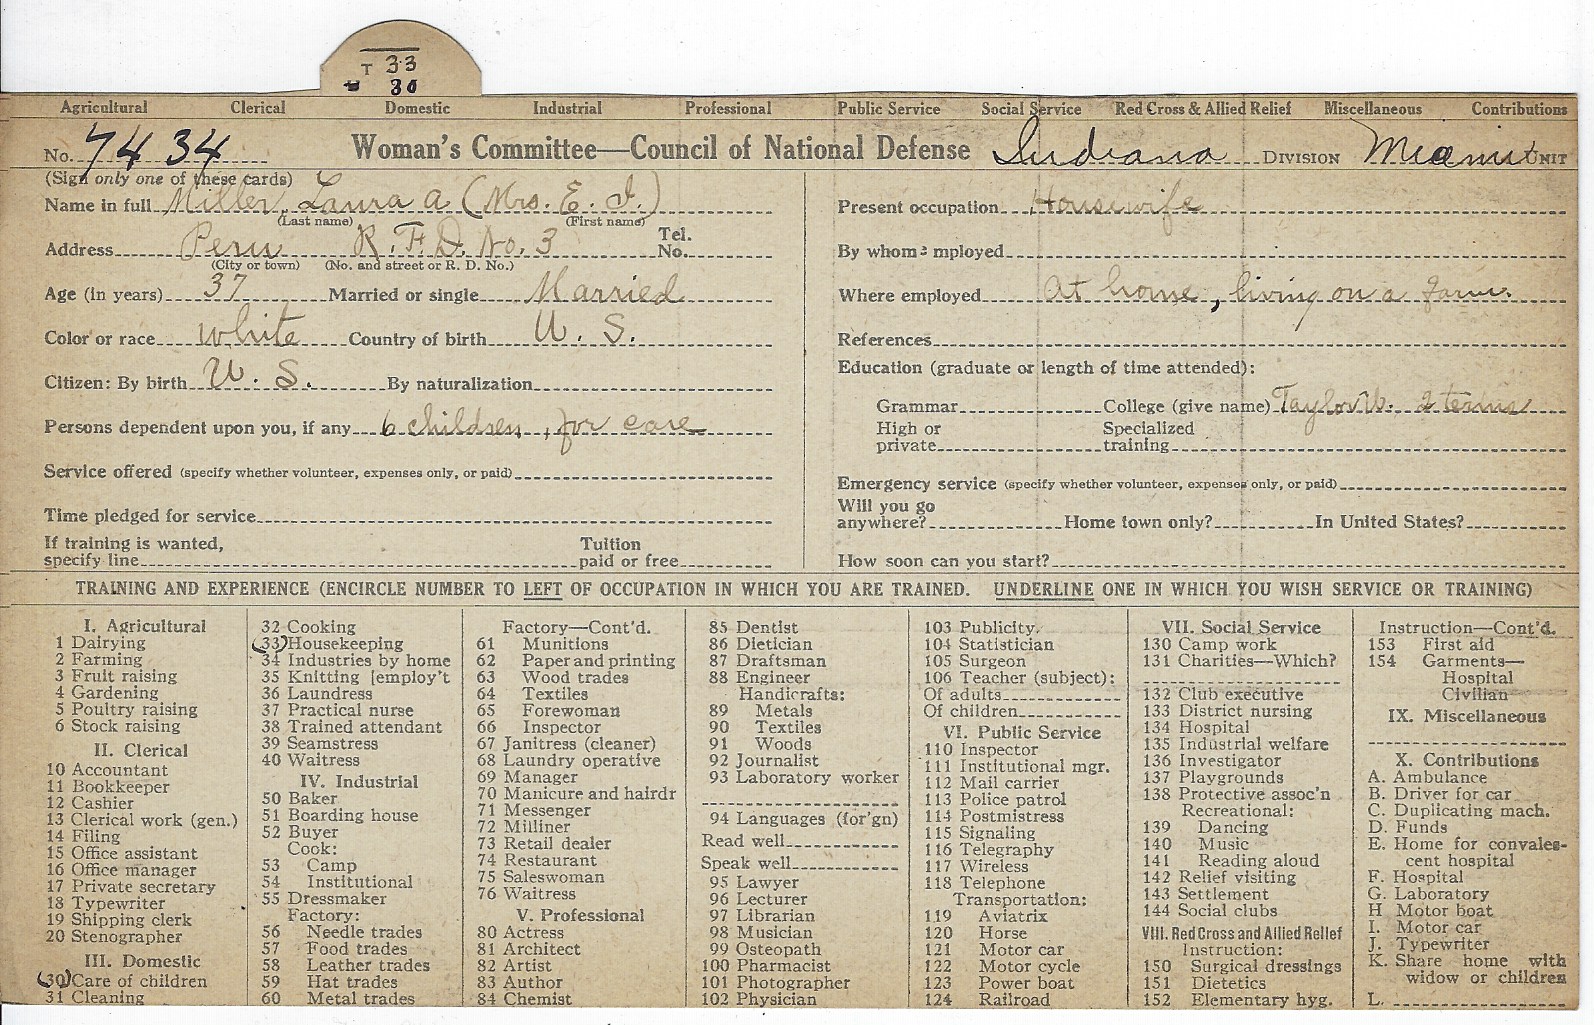 T 33
30
Agricultural Clerical Domestic Industrial Professional Public Service Social Service Red Cross & Allied Relief Miscellaneous Contributions
No. 7434 Woman's Committee—Council of National Defense Indiana DIVISION Miami UNIT
(Sign only one of these cards)
Name in full Miller, Laura A (Mrs. E. I.)
(Last name) (First name)
Address Peru R.F.D. No. 3 Tel. No.
(City or town) (No. and street or R. D. No.)
Age (in years) 37 Married or single Married
Color or race white Country of birth U. S.
Citizen: By birth U. S. By naturalization
Persons dependent upon you, if any 6 children, for care
Service offered (specify whether volunteer, expenses only, or paid)
Time pledged for service
If training is wanted, specify line Tuition paid or free
Present occupation Housewife
By whom employed
Where employed At home, living on a farm.
References
Education (graduate or length of time attended):
Grammar College (give name) Taylor U. 2 terms
High or private Specialized training
Emergency service (specify whether volunteer, expenses only, or paid)
Will you go anywhere? Home town only? In United States?
How soon can you start?
TRAINING AND EXPERIENCE (ENCIRCLE NUMBER TO LEFT OF OCCUPATION IN WHICH YOU ARE TRAINED. UNDERLINE ONE IN WHICH YOU WISH SERVICE OR TRAINING)
I. Agricultural
1 Dairying
2 Farming
3 Fruit raising
4 Gardening
5 Poultry raising
6 Stock raising
II. Clerical
10 Accountant
11 Bookkeeper
12 Cashier
13 Clerical work (gen.)
14 Filing
15 Office assistant
16 Office manager
17 Private secretary
18 Typewriter
19 Shipping clerk
20 Stenographer
III. Domestic
30 Care of children
31 Cleaning
32 Cooking
33 Housekeeping
34 Industries by home
35 Knitting [employ't
36 Laundress
37 Practical nurse
38 Trained attendant
39 Seamstress
40 Waitress
IV. Industrial
50 Baker
51 Boarding house
52 Buyer
Cook:
53 Camp
54 Institutional
55 Dressmaker
Factory:
56 Needle trades
57 Food trades
58 Leather trades
59 Hat trades
60 Metal trades
Factory—Cont'd.
61 Munitions
62 Paper and printing
63 Wood trades
64 Textiles
65 Forewoman
66 Inspector
67 Janitress (cleaner)
68 Laundry operative
69 Manager
70 Manicure and hairdr
71 Messenger
72 Milliner
73 Retail dealer
74 Restaurant
75 Saleswoman
76 Waitress
V. Professional
80 Actress
81 Architect
82 Artist
83 Author
84 Chemist
85 Dentist
86 Dietician
87 Draftsman
88 Engineer
Handicrafts:
89 Metals
90 Textiles
91 Woods
92 Journalist
93 Laboratory worker
94 Languages (for'gn)
Read well
Speak well
95 Lawyer
96 Lecturer
97 Librarian
98 Musician
99 Osteopath
100 Pharmacist
101 Photographer
102 Physician
103 Publicity.
104 Statistician
105 Surgeon
106 Teacher (subject):
Of adults
Of children
VI. Public Service
110 Inspector
111 Institutional mgr.
112 Mail carrier
113 Police patrol
114 Postmistress
115 Signaling
116 Telegraphy
117 Wireless
118 Telephone
Transportation:
119 Aviatrix
120 Horse
121 Motor car
122 Motor cycle
123 Power boat
124 Railroad
VII. Social Service
130 Camp work
131 Charities—Which?
132 Club executive
133 District nursing
134 Hospital
135 Industrial welfare
136 Investigator
137 Playgrounds
138 Protective assoc'n
Recreational:
139 Dancing
140 Music
141 Reading aloud
142 Relief visiting
143 Settlement
144 Social clubs
VIII. Red Cross and Allied Relief
Instruction:
150 Surgical dressings
151 Dietetics
152 Elementary hyg.
Instruction—Cont'd.
153 First aid
154 Garments—
Hospital
Civilian
IX. Miscellaneous
X. Contributions
A. Ambulance
B. Driver for car
C. Duplicating mach.
D. Funds
E. Home for convales-
cent hospital
F. Hospital
G. Laboratory
H Motor boat
I. Motor car
J. Typewriter
K. Share home with
widow or children
L.